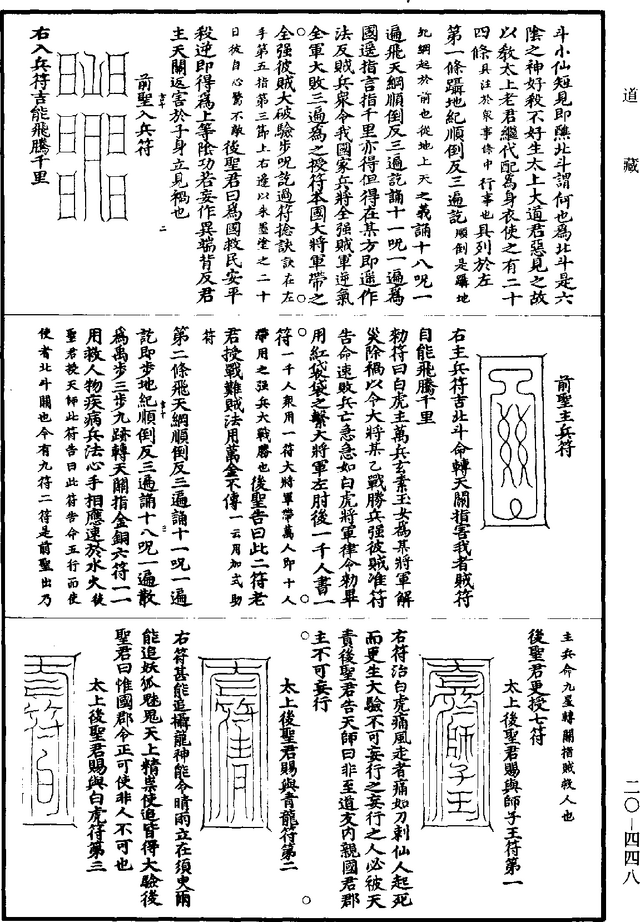 道藏
斗小仙短見即醮北斗謂何也為北斗是六
陰之神好殺不好生太上大道君惡見之故
以敎太上老君繼代配為身衣使之有二十
四條具注於衆事條中行事也具列於左
第一條躡地紀順倒反三遍訖順倒是躡地
紀綱起於前也從地上天之義誦十八呪一
遍飛天綱順倒反三遍訖誦十一呪一遍為
國遥指言指千里亦得但得在某方即遥作
法反賊兵衆令我國家兵將全强賊軍逆氣
全軍大敗三遍為之授符本國大將軍帶之
全强彼賊大破驗步呪訖過符捻訣訣在左
手第五指第三節上右邊以朱墨堂之二十
日彼自心驚不敵後聖君曰為國救民安平
殺逆即得為上等陰功若妄作異端背反君
主天關返害於子身立見禍也
前聖入兵符
右入兵符吉能飛騰千里
前聖主兵符
右主兵符吉北斗命轉天關指害我者賊符
自能飛騰千里
勑符曰白虎主萬兵玄素玉女為某將軍解
災除禍以今大將某乙戰勝兵强彼賊准符
告命速敗兵亡急急如白虎將軍律令勑畢
用紅袋袋之繫大將軍左肘後一千人書一
符一千人衆用一符大將軍帶萬人即十人
帶用之强兵大戰勝也後聖告曰此二符老
君授戰難賊法用萬金不傳一云月加式助
符
第二條飛天綱順倒反三遍誦十一呪一遍
訖即步地紀順倒反三遍誦十八呪一遍散
為禹步三步九跡轉天關指金銅六符一一
用救人物疾病兵法心手相應速於水火後
聖君授天師此符告曰此符告命五行而使
使者北斗關也今有九符二符是前聖出乃
主兵命九星轉關指賊救人也
後聖君更授七符
太上後聖君賜與師子王符第一
右符治白虎痛風走者痛如刀刺仙人起死
而更生大驗不可妄行之妄行之人必被天
責後聖君告天師曰非至道友內親國君郡
主不可妄行
太上後聖君賜與青龍符第二
右符甚能追攝龍神能令晴雨立在須臾兩
能追妖狐魅鬼天上精祟使追皆得大驗後
聖君曰惟國郡令正可使非人不可也
太上後聖君賜與白虎符第三
二〇—四四八